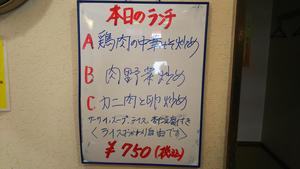 本日のランチ
A 鶏肉の中華炒め
B 肉野菜炒め
C カニ肉と卵炒め
ザーサイ、スープ、ライス、杏仁豆腐付き
(ライスおかわり自由です)
¥750(税込)